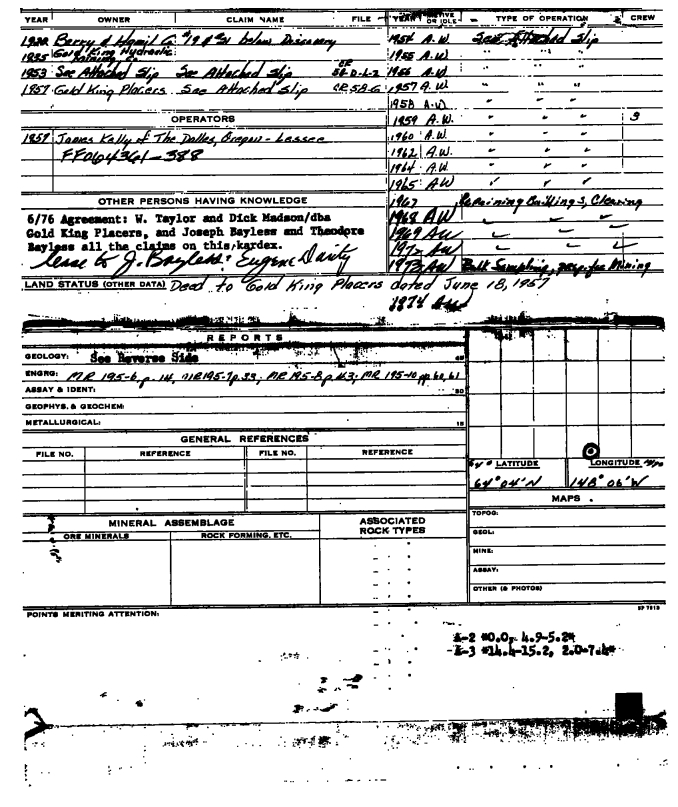 YEAR OWNER CLAIM NAME FILE YEAR ACTIVE OR IDLE TYPE OF OPERATION CREW
1920 Berry & Hamil Co. #19 & 21 below Discovery 1954 A.W. See Attached Slip
1935 Gold King Hydraulic Mining Co. 1955 A.W. " " "
1953 See Attached Slip See Attached Slip 1956 A.W. " " "
1957 Gold King Placers See Attached Slip 1957 A.W. " " "
1958 A.W. " " "
OPERATORS 1959 A.W. " " " 3
1957 James Kelly of The Dalles, Oregon - Lessee 1960 A.W. " " "
FF064361-388 1962 A.W. " " "
1964 A.W. " " "
1965 A.W. " " "
OTHER PERSONS HAVING KNOWLEDGE 1967 Repairing Buildings, Clearing
6/76 Agreement: W. Taylor and Dick Madson/dba 1968 AW
Gold King Placers, and Joseph Bayless and Theodore 1969 AW
Bayless all the claims on this kardex. 1972 AW
lease to J. Bayless: Eugene 1973 AW Bulk Sampling, Mining
LAND STATUS (OTHER DATA) Deed to Gold King Placers dated June 18, 1957
1974 AW
REPORTS
GEOLOGY: See Reverse Side
ENGRG: MR 195-6, p. 14, MR 195-7 p. 33; MR 195-8 p. 43; MR 195-10 pp. 60, 61
ASSAY & IDENT:
GEOPHYS. & GEOCHEM:
METALLURGICAL:
GENERAL REFERENCES
FILE NO. REFERENCE FILE NO. REFERENCE
64° LATITUDE LONGITUDE
64° 04' N 148° 06' W
MAPS
MINERAL ASSEMBLAGE ASSOCIATED ROCK TYPES
ORE MINERALS ROCK FORMING, ETC.
TOPOG:
GEOL:
MINE:
ASSAY:
OTHER (& PHOTOS)
POINTS MERITING ATTENTION: